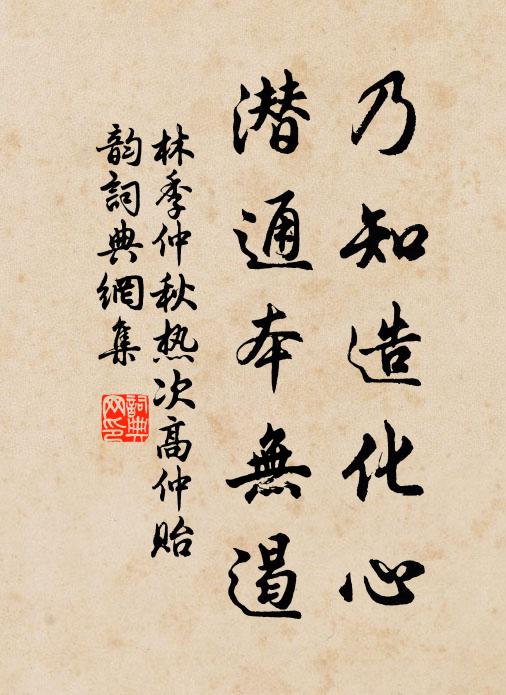 乃知造化心
潜通本無遏
林季仲秋热次高仲貽
韵詞典網集
詞典
网印